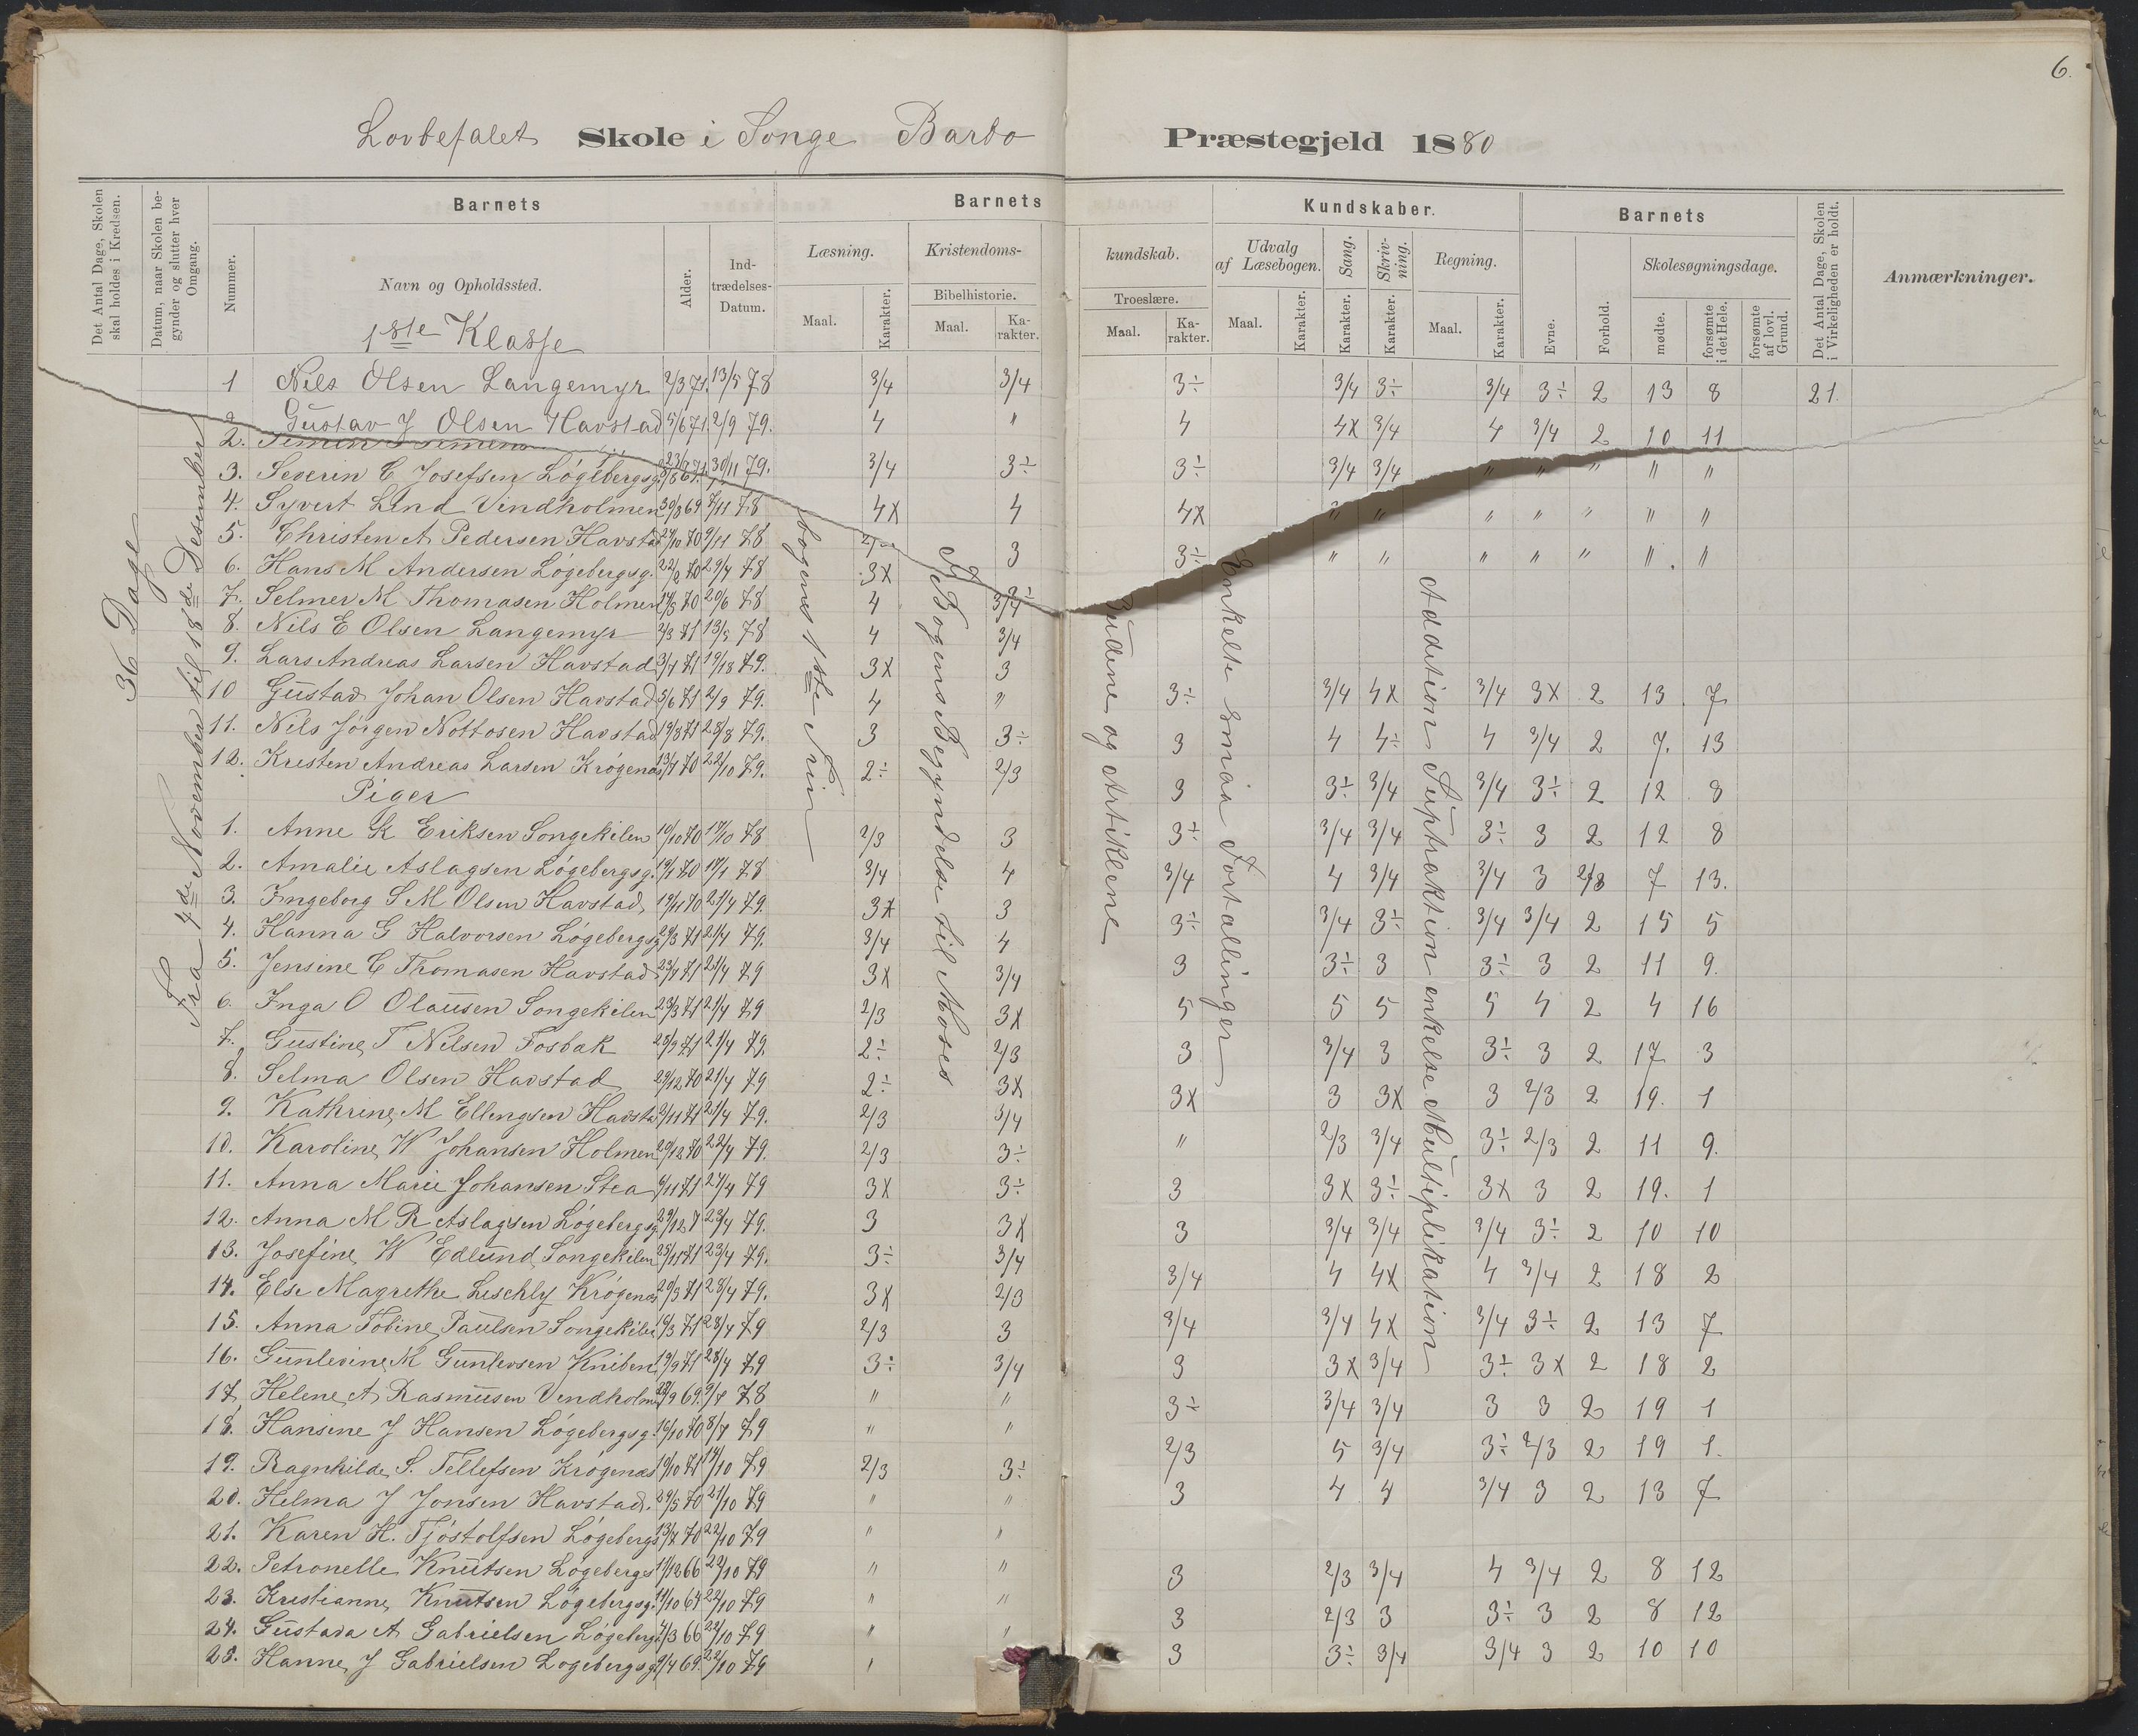 6.
Lovbefalet Skole i Songe Barbo Præstegjeld 1880
Det Antal Dage, Skolen skal holdes i Kredsen.
Datum, naar Skolen begynder og slutter hver Omgang.
Barnets
Nummer.
Navn og Opholdssted.
Alder.
Indtrædelses-Datum.
Barnets Kundskaber.
Læsning.
Maal.
Karakter.
Kristendomskundskab.
Bibelhistorie.
Maal.
Karakter.
Troeslære.
Maal.
Karakter.
Udvalg af Læsebogen.
Maal.
Karakter.
Sang.
Karakter.
Skrivning.
Karakter.
Regning.
Maal.
Karakter.
Barnets
Evne.
Forhold.
Skolesøgningsdage.
mødte.
forsømte i det Hele.
forsømte af lovl. Grund.
Det Antal Dage, Skolen i Virkeligheden er holdt.
Anmærkninger.
1ste Klasse
36 Dage
Fra 4de November til 18de Desember
bogens 1ste Trin
Bogens Begyndelse til Moses
Budene og Artiklene
Enkelte smaa Fortællinger
Addition Suptraktion enkelse Multiplikation
1 Nils Olsen Langemyr 2/3 71. 13/5 78 3/4 3/4 3÷ 3/4 3÷ 3/4 3÷ 2 13 8 21.
Gustav J Olsen Havstad 5/6 71. 2/9 79. 4 " 4 4x 3/4 4 3/4 2 10 11
2. 30/11 79. 3/4 3÷ 3÷ 3/4 3/4 " " " " "
3. Severin C Josefsen Løgebergsg.
4. Syvert Lind Vindholmen 30/8 69 7/11 78 4x 4 4x " " " " " " "
5. Christen A Pedersen Havstad 24/10 70 9/11 78 3 3÷ " " " " " " "
6. Hans M Andersen Løgebergsg. 22/2 70 29/4 78 3x
7. Selmer M Thomasen Holmen 14/5 70 20/6 78 4 3/4
8. Nils E Olsen Langemyr 2/3 71 13/5 78 4 3/4
9. Lars Andreas Larsen Havstad 3/4 71 79. 3x 3
10 Gustav Johan Olsen Havstad 5/6 71 2/9 79. 4 " 3÷ 3/4 4x 3/4 3x 2 13 7
11. Nils Jørgen Nottosen Havstad 19/8 71 28/8 79. 3 3÷ 3 4 4÷ 4 3/4 2 7. 13
12. Kristen Andreas Larsen Krøgenæs 13/7 70 22/10 79. 2÷ 2/3 3 3÷ 3/4 3/4 3÷ 2 12 8
Piger
1. Anne K Eriksen Songekilen 10/10 70 17/10 78 2/3 3 3÷ 3/4 3/4 3÷ 3 2 12 8
2. Amalie Aslagsen Løgebergsg. 19/1 70 78 3/4 4 3/4 4 3/4 3/4 3 2/3 7 13.
3. Ingeborg S M Olsen Havstad 19/11 70 21/4 79. 3x 3 3÷ 3/4 3÷ 3/4 3/4 2 15 5
4. Hanna G Halvorsen Løgebergsg. 71 21/4 79. 3/4 4 3 3÷ 3 3÷ 3 2 11 9.
5. Jensine C Thomasen Havstad 23/4 71 21/4 79 3x 3/4 5 5 5 5 4 2 4 16
6. Inga O Olausen Songekilen 23/3 71 21/4 79 2/3 3x 3 3/4 3 3÷ 3 2 17 3
7. Gustine T Nilsen Fosbæk 25/9 71 21/4 79. 2÷ 2/3 3x 3 3x 3 2/3 2 19. 1
8. Selma Olsen Havstad 29/12 70 21/4 79 2÷ 3x " 2/3 3/4 3÷ 2/3 2 11 9.
9. Kathrine M Ellingsen Havsta 2/11 71 21/4 79. 2/3 3/4 3 3x 3÷ 3x 3 2 19. 1
10. Karoline W Johansen Holmen 20/12 70 22/4 79. 2/3 3÷ 3 3/4 3/4 3/4 3÷ 2 10 10
11. Anna Marie Johansen Stea 6/11 71 21/4 79 3x 3÷ 3/4 4 4x 4 3/4 2 18 2
12. Anna M R Aslagsen Løgebergsg. 29/12 7 23/4 79. 3 3x 3/4 3/4 4x 3/4 3÷ 2 13 7
13. Josefine W Edlund Songekilen 25/11 71 23/4 79. 3÷ 3/4 3 3x 3/4 3÷ 3x 2 18 2
14. Else Magrethe Leschly Krøgenæs 20/3 71 28/4 79. 3x 2/3 3÷ 3/4 3/4 3 3 2 19 1
15. Anna Tobine Paulsen Songekilen 19/3 71 28/4 79 2/3 3 2/3 5 3/4 3÷ 2/3 2 19 1.
16. Gunlevine M Gunlevsen Kniben 19/9 71 28/4 79 3÷ 3/4 3 4 4 3/4 3 2 13 7
17. Helene A Rasmusen Vindholm 69. 9/7 78 " "
18. Hansine J Hansen Løgebergsg. 16/10 70 8/7 79 " " 3 2/3 3/4 4 3/4 2 8 12
19. Ragnhilde S. Tellefsen Krøgenæs 19/10 71 14/10 79 2/3 3÷ 3 2/3 3 3÷ 3 2 8 12
20. Helma J Jonsen Havstad. 29/5 70 21/10 79 " " 3 3÷ 3/4 3/4 3 2 10 10
21. Karen H. Tjøstolfsen Løgebergs 13/7 70 22/10 79 " "
22. Petronelle Knutsen Løgebergs 11/12 66 22/10 79 " "
23. Kristianne Knutsen Løgebergsg. 11/10 64 22/10 79 " "
24. Gustava A Gabrielsen Løgebergs 4/3 66 22/10 79 " "
25. Hanne J Gabrielsen Løgebergsg. 9/4 69. 22/10 79